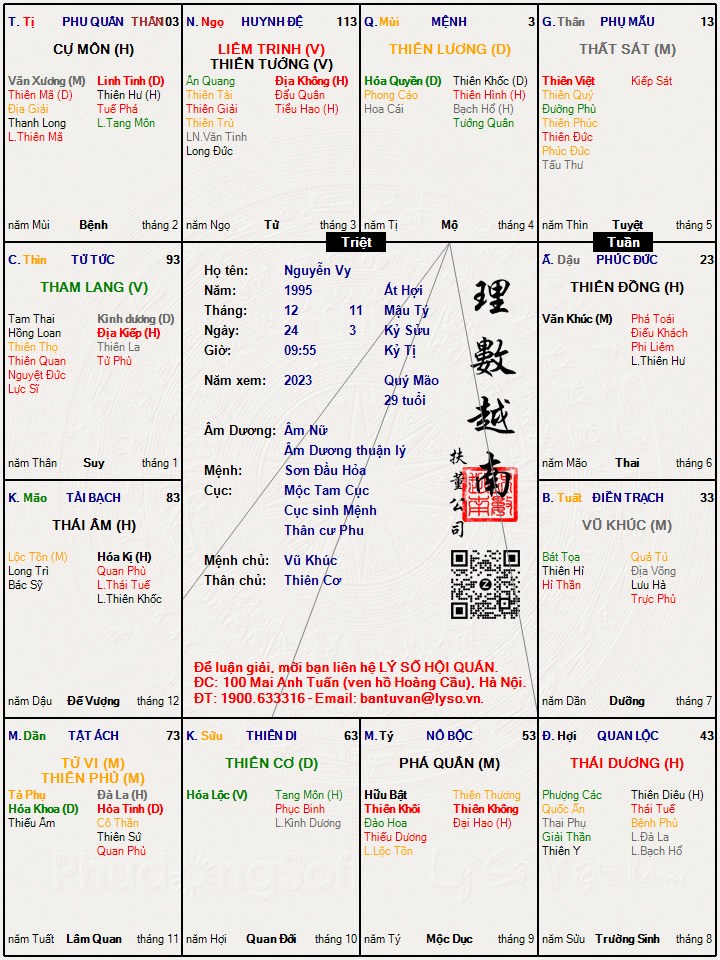 T. Tị PHU QUÂN THÂN 103
CỰ MÔN (H)
Văn Xương (M) Linh Tinh (D)
Thiên Mã (D) Thiên Hư (H)
Địa Giải Tuế Phá
Thanh Long L.Tang Môn
L.Thiên Mã
năm Mùi Bệnh tháng 2
N. Ngọ HUYNH ĐỆ 113
LIÊM TRINH (V)
THIÊN TƯỚNG (V)
Ân Quang Địa Không (H)
Thiên Tài Đẩu Quân
Thiên Giải Tiểu Hao (H)
Thiên Trù
LN.Văn Tinh
Long Đức
năm Ngọ Tử tháng 3
Q. Mùi MỆNH 3
THIÊN LƯƠNG (D)
Hóa Quyền (D) Thiên Khốc (D)
Phong Cáo Thiên Hình (H)
Hoa Cái Bạch Hổ (H)
Tướng Quân
năm Tị Mộ tháng 4
G. Thân PHỤ MẪU 13
THẤT SÁT (M)
Thiên Việt Kiếp Sát
Thiên Quý
Đường Phù
Thiên Phúc
Thiên Đức
Phúc Đức
Tấu Thư
năm Thìn Tuyệt tháng 5
Triệt
Tuần
C. Thìn TỬ TỨC 93
THAM LANG (V)
Tam Thai Kình dương (D)
Hồng Loan Địa Kiếp (H)
Thiên Thọ Thiên La
Thiên Quan Tử Phù
Nguyệt Đức
Lực Sĩ
năm Thân Suy tháng 1
Họ tên: Nguyễn Vy
Năm: 1995 Ất Hợi
Tháng: 12 11 Mậu Tý
Ngày: 24 3 Kỷ Sửu
Giờ: 09:55 Kỷ Tị
Năm xem: 2023 Quý Mão
29 tuổi
Âm Dương: Âm Nữ
Âm Dương thuận lý
Mệnh: Sơn Đầu Hỏa
Cục: Mộc Tam Cục
Cục sinh Mệnh
Thân cư Phu
Mệnh chủ: Vũ Khúc
Thân chủ: Thiên Cơ
理數越南
扶董公司
Z
Để luận giải, mời bạn liên hệ LÝ SỐ HỘI QUÁN.
ĐC: 100 Mai Anh Tuấn (ven hồ Hoàng Cầu), Hà Nội.
ĐT: 1900.633316 - Email: bantuvan@lyso.vn.
Ấ. Dậu PHÚC ĐỨC 23
THIÊN ĐỒNG (H)
Văn Khúc (M) Phá Toái
Điếu Khách
Phi Liêm
L.Thiên Hư
năm Mão Thai tháng 6
K. Mão TÀI BẠCH 83
THÁI ÂM (H)
Lộc Tồn (M) Hóa Kị (H)
Long Trì Quan Phù
Bác Sỹ L.Thái Tuế
L.Thiên Khốc
năm Dậu Đế Vượng tháng 12
B. Tuất ĐIỀN TRẠCH 33
VŨ KHÚC (M)
Bát Tọa Quả Tú
Thiên Hỉ Địa Võng
Hỉ Thần Lưu Hà
Trực Phù
năm Dần Dưỡng tháng 7
M. Dần TẬT ÁCH 73
TỬ VI (M)
THIÊN PHỦ (M)
Tả Phụ Đà La (H)
Hóa Khoa (D) Hỏa Tinh (D)
Thiếu Âm Cô Thần
Thiên Sứ
Quan Phủ
năm Tuất Lâm Quan tháng 11
K. Sửu THIÊN DI 63
THIÊN CƠ (D)
Hóa Lộc (V) Tang Môn (H)
Phục Binh
L.Kình Dương
năm Hợi Quan Đới tháng 10
M. Tý NÔ BỘC 53
PHÁ QUÂN (M)
Hữu Bật Thiên Thương
Thiên Khôi Thiên Không
Đào Hoa Đại Hao (H)
Thiếu Dương
L.Lộc Tồn
năm Tý Mộc Dục tháng 9
Đ. Hợi QUAN LỘC 43
THÁI DƯƠNG (H)
Phượng Các Thiên Diêu (H)
Quốc Ấn Thái Tuế
Thai Phụ Bệnh Phù
Giải Thần L.Đà La
Thiên Y L.Bạch Hổ
năm Sửu Trường Sinh tháng 8